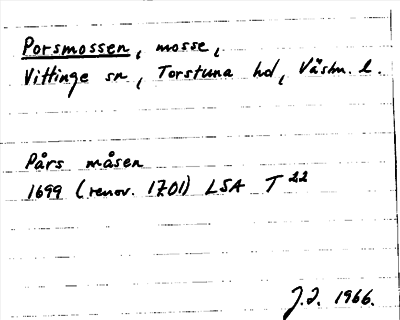 Porsmossen, mosse,
Vittinge sn, Torstuna hd, Västm. l.
Pårs måsen
1699 (renov. 1701) LSA T 22
J.J. 1966.